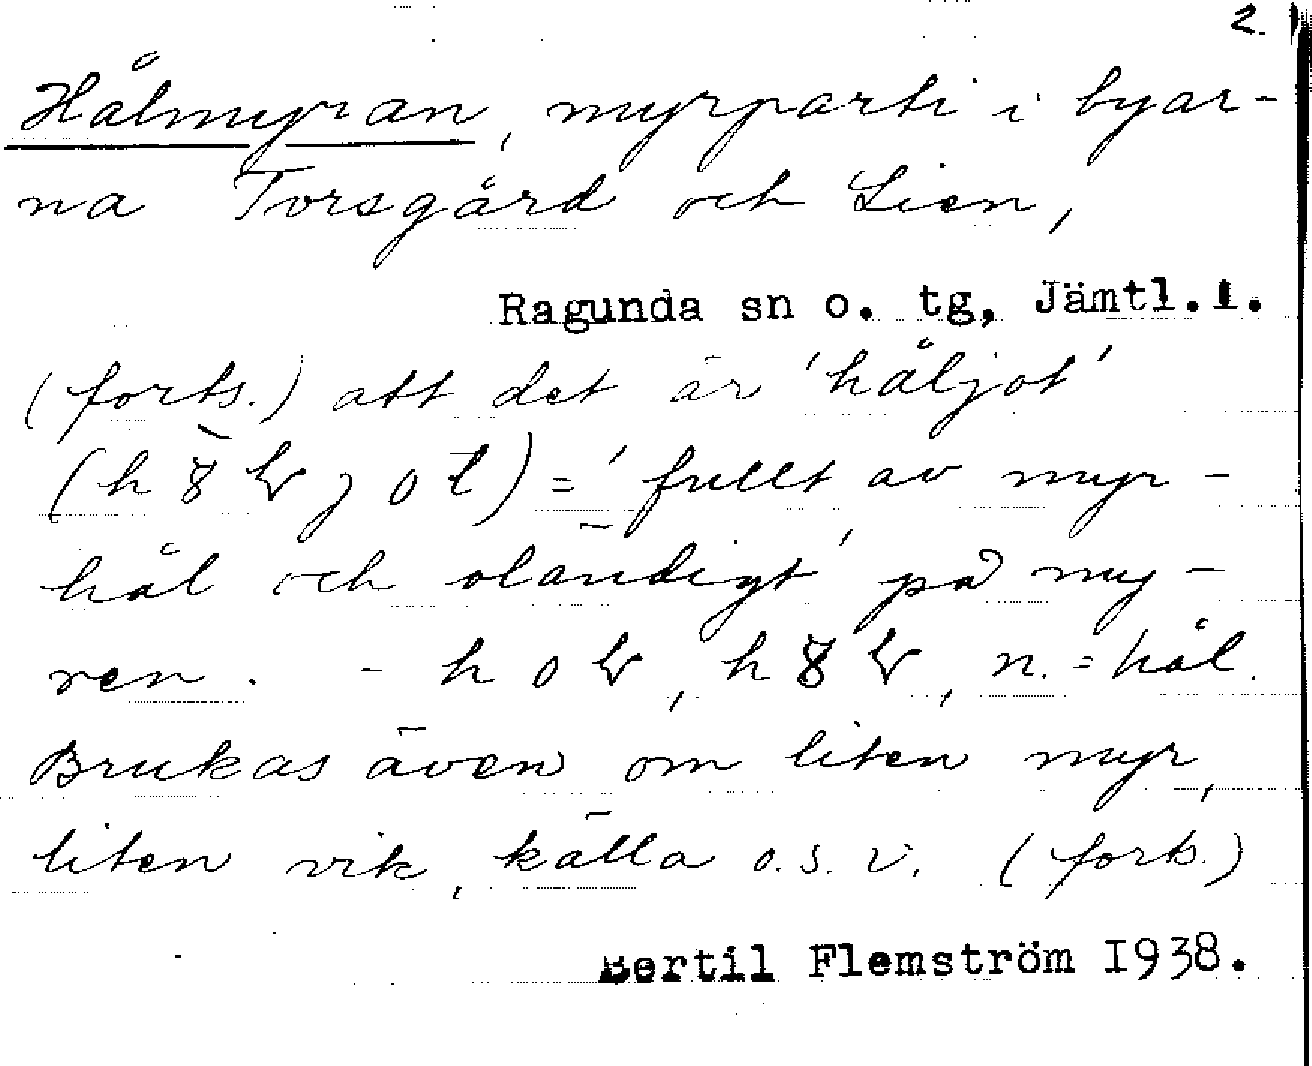 2.
Hålmyran, myrparti i byar-
na Torsgård och Lien,
Ragunda sn o. tg, Jämtl.l.
(forts.) att det är 'håljot'
= 'fullt av myr-
hål och oländigt' på my-
ren. - n. = hål.
Brukas även om liten myr,
liten vik, källa o.s.v. (forts.)
Bertil Flemström 1938.